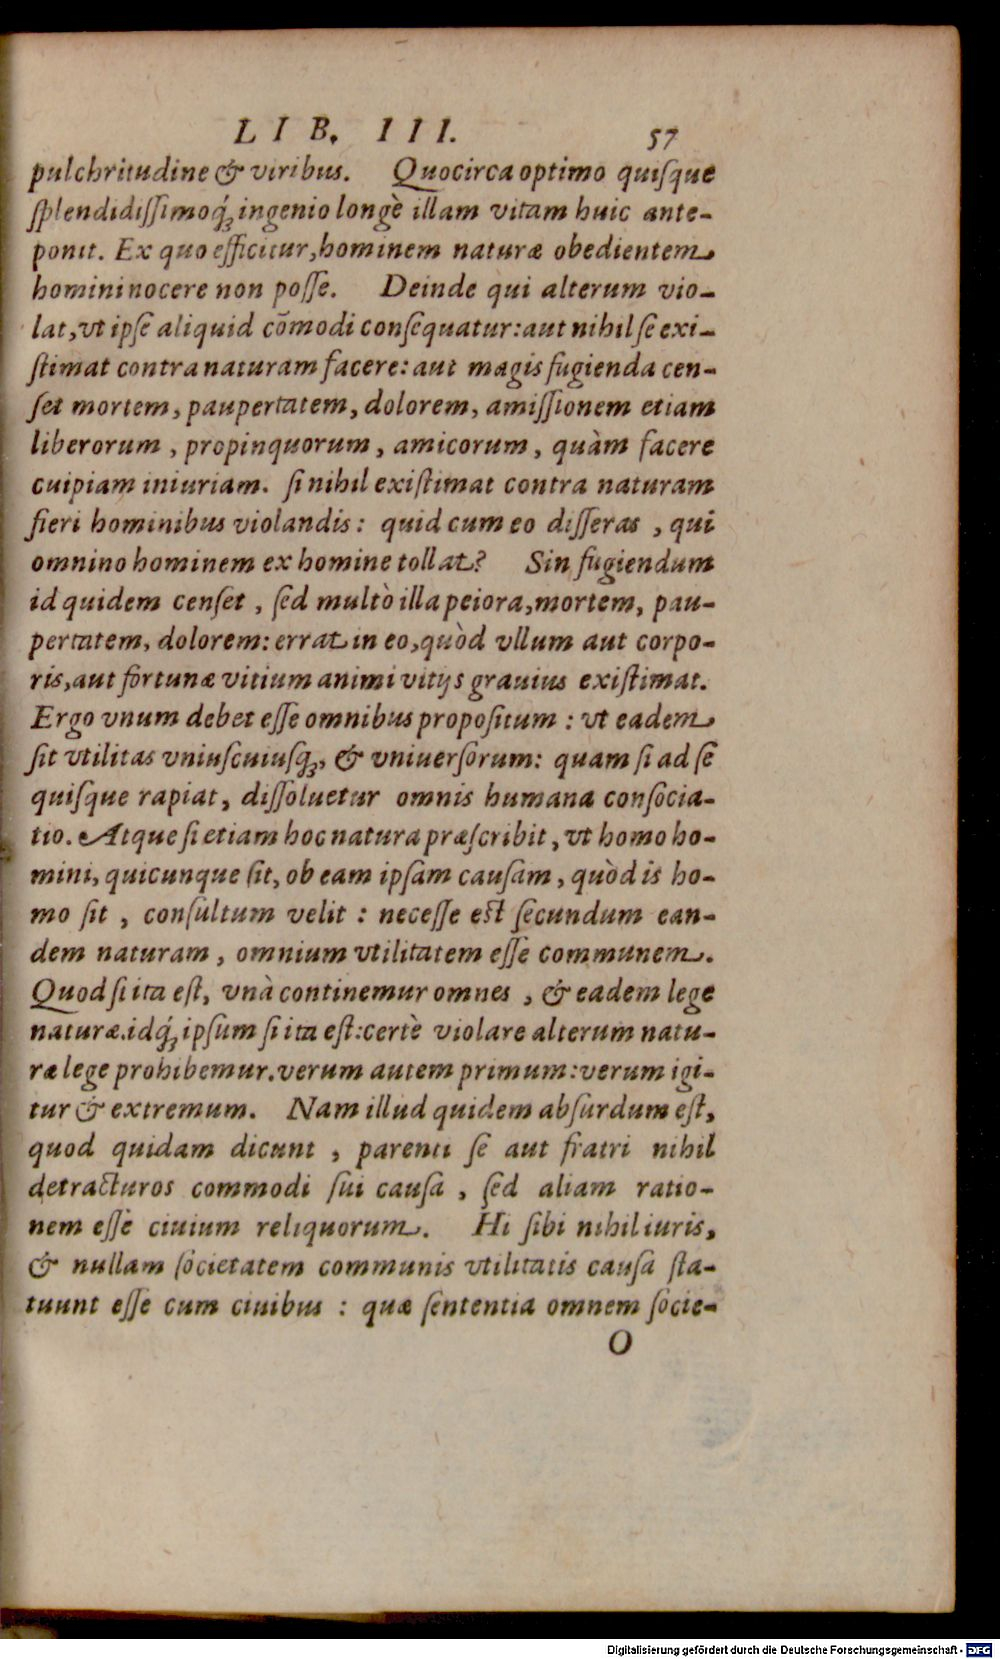 LIB. III. 57
pulchritudine & viribus. Quocirca optimo quiſque
ſplendidiſſimoq́ꝫ ingenio longè illam vitam huic ante-
ponit. Ex quo efficitur, hominem naturæ obedientem
homini nocere non poſſe. Deinde qui alterum vio-
lat, vt ipſe aliquid cōmodi conſequatur: aut nihil ſe exi-
ſtimat contra naturam facere: aut magis fugienda cen-
ſet mortem, paupertatem, dolorem, amiſſionem etiam
liberorum, propinquorum, amicorum, quàm facere
cuipiam iniuriam. ſi nihil exiſtimat contra naturam
fieri hominibus violandis: quid cum eo diſſeras, qui
omnino hominem ex homine tollat? Sin fugiendum
id quidem cenſet, ſed multò illa peiora, mortem, pau-
pertatem, dolorem: errat in eo, quòd vllum aut corpo-
ris, aut fortunæ vitium animi vitijs grauius exiſtimat.
Ergo vnum debet eſſe omnibus propoſitum: vt eadem
ſit vtilitas vniuſcuiuſqꝫ, & vniuerſorum: quam ſi ad ſe
quiſque rapiat, diſſoluetur omnis humana conſocia-
tio. Atque ſi etiam hoc natura præſcribit, vt homo ho-
mini, quicunque ſit, ob eam ipſam cauſam, quòd is ho-
mo ſit, conſultum velit: neceſſe eſt ſecundum ean-
dem naturam, omnium vtilitatem eſſe communem.
Quod ſi ita eſt, vnà continemur omnes, & eadem lege
naturæ. idq́ꝫ ipſum ſi ita eſt: certè violare alterum natu-
ræ lege prohibemur. verum autem primum: verum igi-
tur & extremum. Nam illud quidem abſurdum eſt,
quod quidam dicunt, parenti ſe aut fratri nihil
detracturos commodi ſui cauſa, ſed aliam ratio-
nem eſſe ciuium reliquorum. Hi ſibi nihil iuris,
& nullam ſocietatem communis vtilitatis cauſa ſta-
tuunt eſſe cum ciuibus: quæ ſententia omnem ſocie-
O
Digitalisierung gefördert durch die Deutsche Forschungsgemeinschaft - DFG